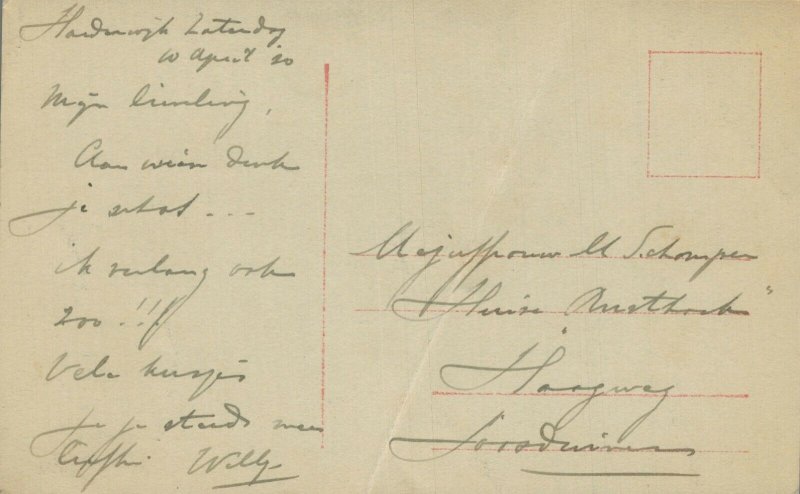 Harderwijk Zaterdag
10 April 20
Mijn lieveling,
Aan wien denk
je schat ...
ik verlang ook
zoo!!!
Vele kusjes
je je steeds
Willy
Mejuffrouw M Schomper
Huize "Rusthoek"
Haagweg
Loosduinen